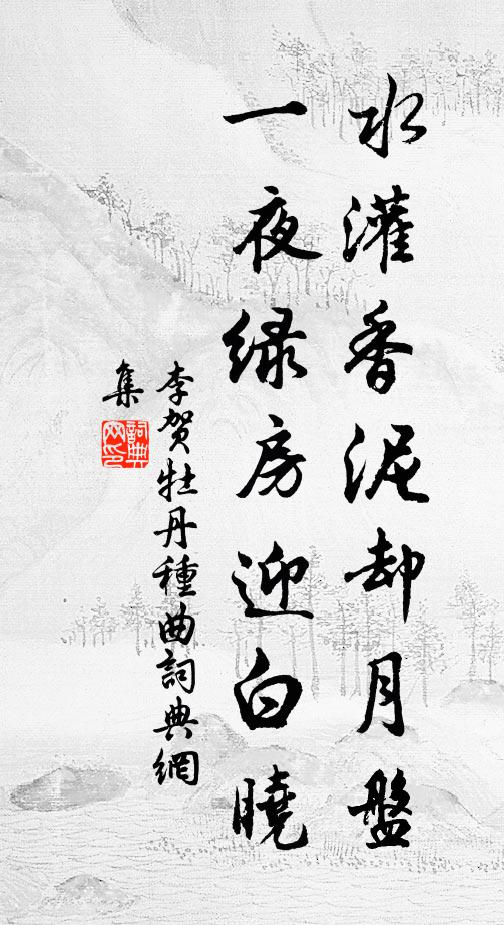 水灌香泥却月盤
一夜绿房迎白曉
李贺牡丹種曲詞典網
集
詞典
网印